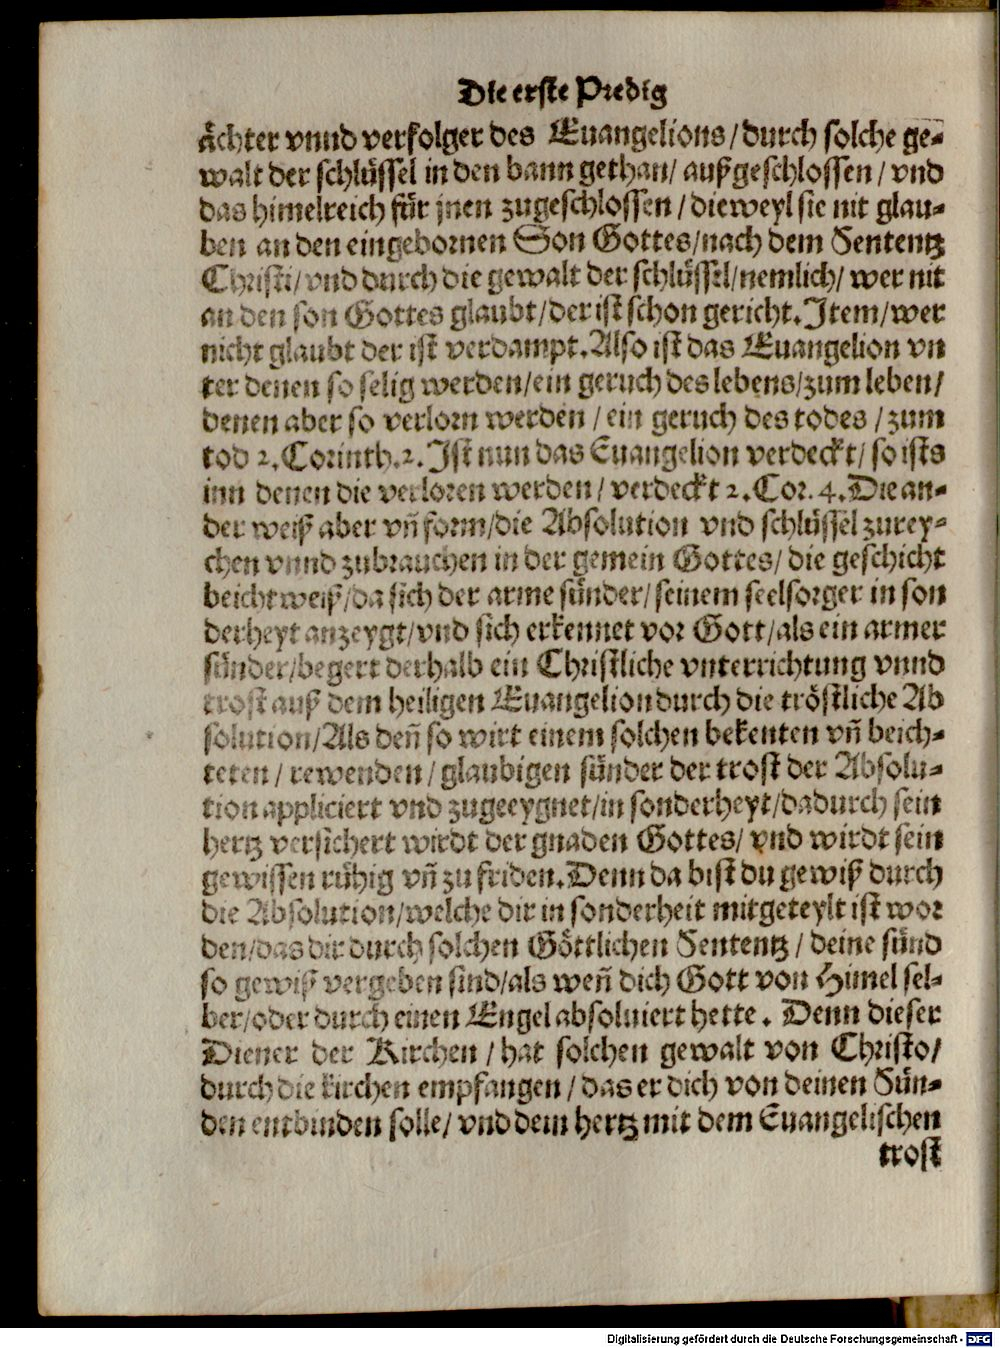 Die erste Predig
ächter vnnd verfolger des Euangelions/durch solche ge-
walt der schlüssel in den bann gethan/ außgeschlossen/ vnd
das himelreich für jnen zugeschlossen/ dieweyl sie nit glau-
ben an den eingebornen Son Gottes/nach dem Sententz
Christi/ vnd durch die gewalt der schlüssel/nemlich/ wer nit
an den son Gottes glaubt/der ist schon gericht. Item/wer
nicht glaubt der ist verdampt. Also ist das Euangelion vn
ter denen so selig werden/ein geruch des lebens/zum leben/
denen aber so verlorn werden/ ein geruch des todes/ zum
tod 2. Corinth. 2. Ist nun das Euangelion verdeckt/ so ists
inn denen die verloren werden/ verdeckt 2. Cor. 4. Die an-
der weiß aber vñ form/die Absolution vnd schlüssel zurey-
chen vnnd zubrauchen in der gemein Gottes/ die geschicht
beichtweiß/da sich der arme sünder/ seinem seelsorger in son
derheyt anzeygt/vnd sich erkennet vor Gott/als ein armer
sünder/begert derhalb ein Christliche vnterrichtung vnnd
trost auß dem heiligen Euangelion durch die tröstliche Ab
solution/Als deñ so wirt einem solchen bekenten vñ beich-
teten/ rewenden/ glaubigen sünder der trost der Absolu-
tion appliciert vnd zugeeygnet/in sonderheyt/dadurch sein
hertz versichert wirdt der gnaden Gottes/ vnd wirdt sein
gewissen rühig vñ zu friden. Denn da bist du gewiß durch
die Absolution/welche dir in sonderheit mitgeteylt ist wor
den/das dir durch solchen Göttlichen Sententz/ deine sünd
so gewiß vergeben sind/als weñ dich Gott von Himel sel-
ber/oder durch einen Engel absoluiert hette. Denn dieser
Diener der Kirchen/ hat solchen gewalt von Christo/
durch die kirchen empfangen/ das er dich von deinen Sün-
den entbinden solle/ vnd dein hertz mit dem Euangelischen
trost
Digitalisierung gefördert durch die Deutsche Forschungsgemeinschaft - DFG